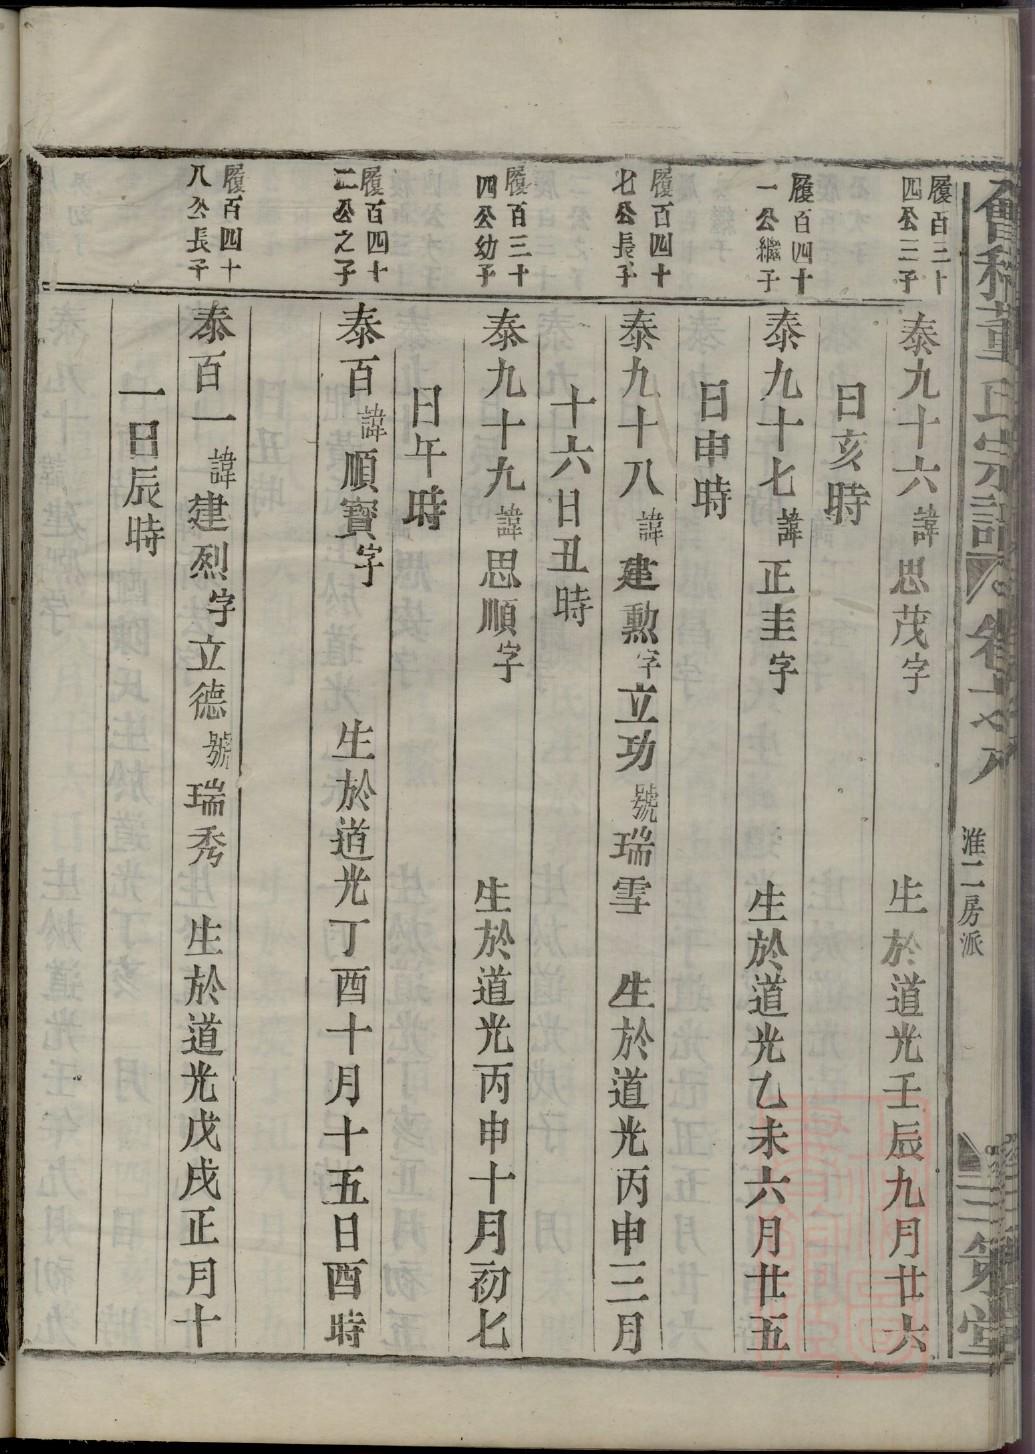 會稽董氏宗譜 卷六
淮二房派
三策堂
履百三十
四公三子
泰九十六諱思茂字 生於道光壬辰九月廿六
日亥時
履百四十
一公繼子
泰九十七諱正圭字 生於道光乙未六月廿五
日申時
履百四十
七公長子
泰九十八諱建勲字立功號瑞雪 生於道光丙申三月
十六日丑時
履百三十
四公幼子
泰九十九諱思順字 生於道光丙申十月初七
日午時
履百四十
二公之子
泰百諱順寶字 生於道光丁酉十月十五日酉時
履百四十
八公長子
泰百一諱建烈字立德號瑞秀 生於道光戊戌正月十
一日辰時